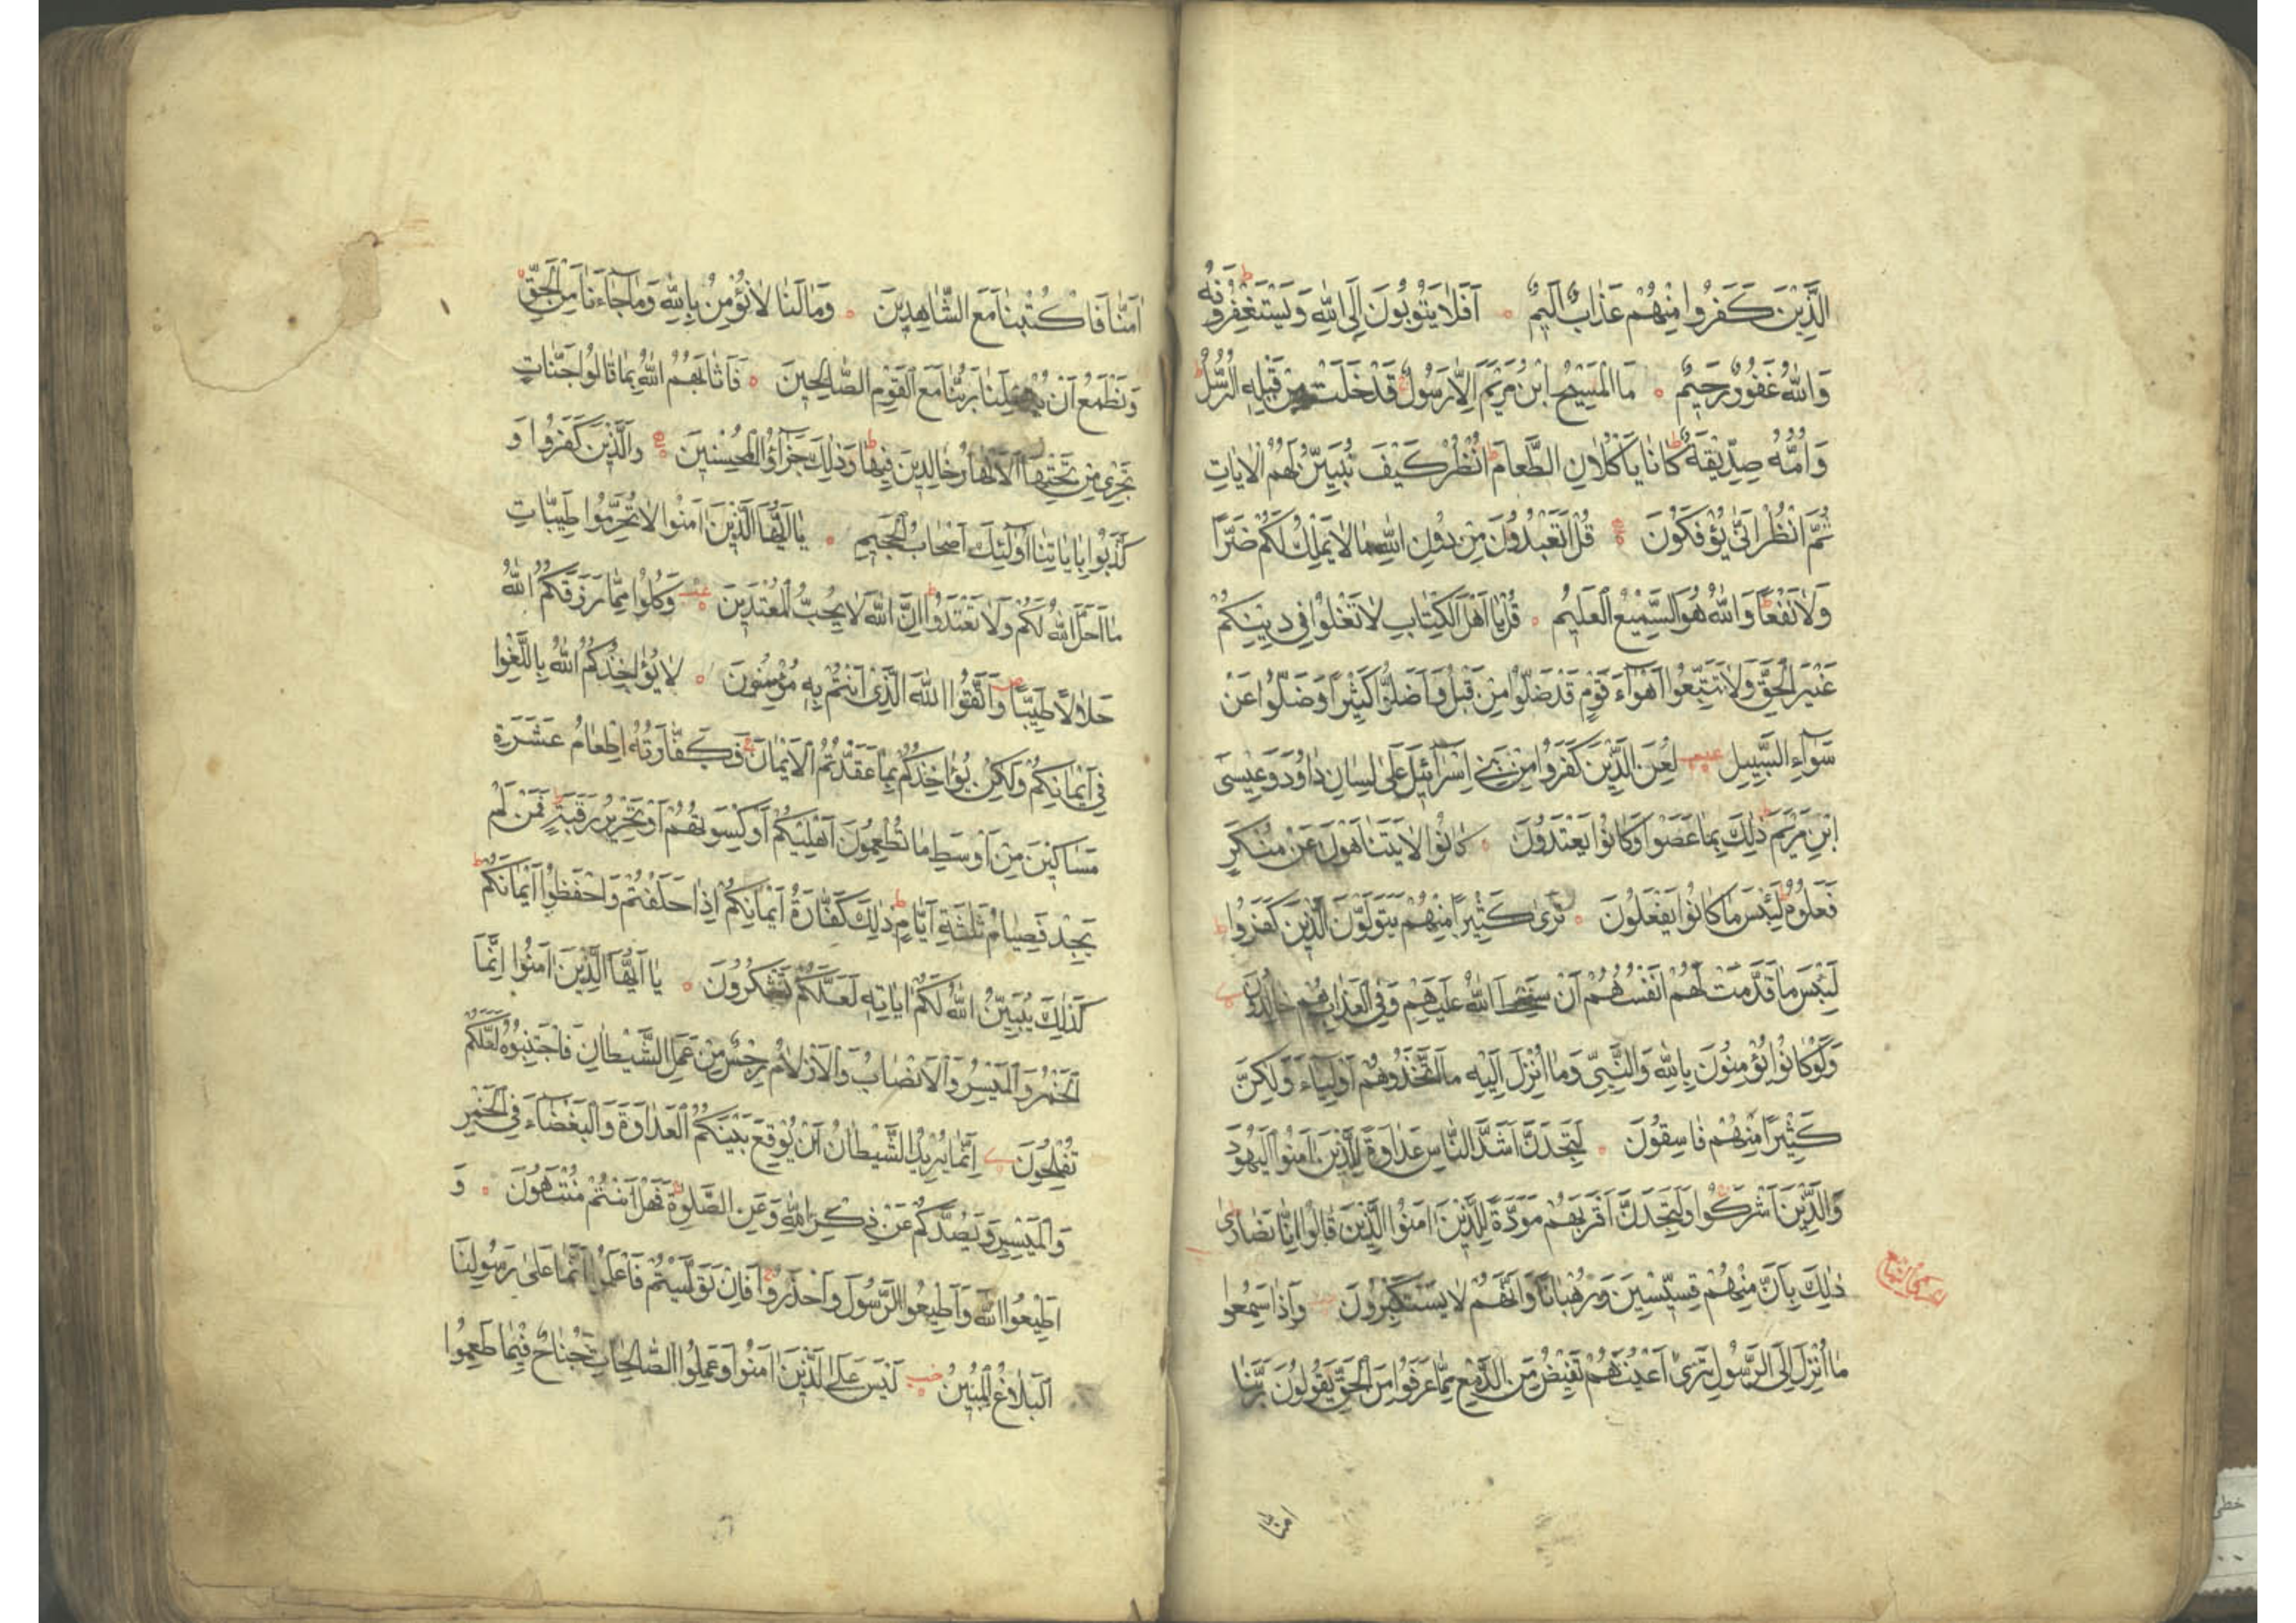 الَّذِينَ كَفَرُوا مِنْهُمْ عَذَابٌ اَلِيمٌ اَفَلَا يَتُوبُونَ اِلَى اللهِ وَيَسْتَغْفِرُونَهُ
وَاللهُ غَفُورٌ رَحِيمٌ مَا الْمَسِيحُ ابْنُ مَرْيَمَ اِلَّا رَسُولٌ قَدْ خَلَتْ مِنْ قَبْلِهِ الرُّسُلُ
وَاُمُّهُ صِدِّيقَةٌ كَانَا يَاْكُلَانِ الطَّعَامَ اُنْظُرْ كَيْفَ نُبَيِّنُ لَهُمُ الْاٰيَاتِ
ثُمَّ انْظُرْ اَنّٰى يُؤْفَكُونَ قُلْ اَتَعْبُدُونَ مِنْ دُونِ اللهِ مَا لَا يَمْلِكُ لَكُمْ ضَرًّا
وَلَا نَفْعًا وَاللهُ هُوَ السَّمِيعُ الْعَلِيمُ قُلْ يَا اَهْلَ الْكِتَابِ لَا تَغْلُوا فِي دِينِكُمْ
غَيْرَ الْحَقِّ وَلَا تَتَّبِعُوا اَهْوَاءَ قَوْمٍ قَدْ ضَلُّوا مِنْ قَبْلُ وَاَضَلُّوا كَثِيرًا وَضَلُّوا عَنْ
سَوَاءِ السَّبِيلِ لُعِنَ الَّذِينَ كَفَرُوا مِنْ بَنِي اِسْرَائِيلَ عَلٰى لِسَانِ دَاوُدَ وَعِيسَى
ابْنِ مَرْيَمَ ذٰلِكَ بِمَا عَصَوْا وَكَانُوا يَعْتَدُونَ كَانُوا لَا يَتَنَاهَوْنَ عَنْ مُنْكَرٍ
فَعَلُوهُ لَبِئْسَ مَا كَانُوا يَفْعَلُونَ تَرٰى كَثِيرًا مِنْهُمْ يَتَوَلَّوْنَ الَّذِينَ كَفَرُوا
لَبِئْسَ مَا قَدَّمَتْ لَهُمْ اَنْفُسُهُمْ اَنْ سَخِطَ اللهُ عَلَيْهِمْ وَفِي الْعَذَابِ هُمْ خَالِدُونَ
وَلَوْ كَانُوا يُؤْمِنُونَ بِاللهِ وَالنَّبِيِّ وَمَا اُنْزِلَ اِلَيْهِ مَا اتَّخَذُوهُمْ اَوْلِيَاءَ وَلٰكِنَّ
كَثِيرًا مِنْهُمْ فَاسِقُونَ لَتَجِدَنَّ اَشَدَّ النَّاسِ عَدَاوَةً لِلَّذِينَ اٰمَنُوا الْيَهُودَ
وَالَّذِينَ اَشْرَكُوا وَلَتَجِدَنَّ اَقْرَبَهُمْ مَوَدَّةً لِلَّذِينَ اٰمَنُوا الَّذِينَ قَالُوا اِنَّا نَصَارٰى
ذٰلِكَ بِاَنَّ مِنْهُمْ قِسِّيسِينَ وَرُهْبَانًا وَاَنَّهُمْ لَا يَسْتَكْبِرُونَ وَاِذَا سَمِعُوا
مَا اُنْزِلَ اِلَى الرَّسُولِ تَرٰى اَعْيُنَهُمْ تَفِيضُ مِنَ الدَّمْعِ مِمَّا عَرَفُوا مِنَ الْحَقِّ يَقُولُونَ رَبَّنَا
اٰمنا
اٰمَنَّا فَاكْتُبْنَا مَعَ الشَّاهِدِينَ وَمَا لَنَا لَا نُؤْمِنُ بِاللهِ وَمَا جَاءَنَا مِنَ الْحَقِّ
وَنَطْمَعُ اَنْ يُدْخِلَنَا رَبُّنَا مَعَ الْقَوْمِ الصَّالِحِينَ فَاَثَابَهُمُ اللهُ بِمَا قَالُوا جَنَّاتٍ
تَجْرِي مِنْ تَحْتِهَا الْاَنْهَارُ خَالِدِينَ فِيهَا وَذٰلِكَ جَزَاؤُ الْمُحْسِنِينَ وَالَّذِينَ كَفَرُوا وَ
كَذَّبُوا بِاٰيَاتِنَا اُولٰئِكَ اَصْحَابُ الْجَحِيمِ يَا اَيُّهَا الَّذِينَ اٰمَنُوا لَا تُحَرِّمُوا طَيِّبَاتِ
مَا اَحَلَّ اللهُ لَكُمْ وَلَا تَعْتَدُوا اِنَّ اللهَ لَا يُحِبُّ الْمُعْتَدِينَ وَكُلُوا مِمَّا رَزَقَكُمُ اللهُ
حَلَالًا طَيِّبًا وَاتَّقُوا اللهَ الَّذِي اَنْتُمْ بِهِ مُؤْمِنُونَ لَا يُؤَاخِذُكُمُ اللهُ بِاللَّغْوِا
فِي اَيْمَانِكُمْ وَلٰكِنْ يُؤَاخِذُكُمْ بِمَا عَقَّدْتُمُ الْاَيْمَانَ فَكَفَّارَتُهُ اِطْعَامُ عَشَرَةِ
مَسَاكِينَ مِنْ اَوْسَطِ مَا تُطْعِمُونَ اَهْلِيكُمْ اَوْ كِسْوَتُهُمْ اَوْ تَحْرِيرُ رَقَبَةٍ فَمَنْ لَمْ
يَجِدْ فَصِيَامُ ثَلٰثَةِ اَيَّامٍ ذٰلِكَ كَفَّارَةُ اَيْمَانِكُمْ اِذَا حَلَفْتُمْ وَاحْفَظُوا اَيْمَانَكُمْ
كَذٰلِكَ يُبَيِّنُ اللهُ لَكُمْ اٰيَاتِهِ لَعَلَّكُمْ تَشْكُرُونَ يَا اَيُّهَا الَّذِينَ اٰمَنُوا اِنَّمَا
الْخَمْرُ وَالْمَيْسِرُ وَالْاَنْصَابُ وَالْاَزْلَامُ رِجْسٌ مِنْ عَمَلِ الشَّيْطَانِ فَاجْتَنِبُوهُ لَعَلَّكُمْ
تُفْلِحُونَ اِنَّمَا يُرِيدُ الشَّيْطَانُ اَنْ يُوقِعَ بَيْنَكُمُ الْعَدَاوَةَ وَالْبَغْضَاءَ فِي الْخَمْرِ
وَالْمَيْسِرِ وَيَصُدَّكُمْ عَنْ ذِكْرِ اللهِ وَعَنِ الصَّلٰوةِ فَهَلْ اَنْتُمْ مُنْتَهُونَ وَ
اَطِيعُوا اللهَ وَاَطِيعُوا الرَّسُولَ وَاحْذَرُوا فَاِنْ تَوَلَّيْتُمْ فَاعْلَمُوا اَنَّمَا عَلٰى رَسُولِنَا
الْبَلَاغُ الْمُبِينُ لَيْسَ عَلَى الَّذِينَ اٰمَنُوا وَعَمِلُوا الصَّالِحَاتِ جُنَاحٌ فِيمَا طَعِمُوا
خطي